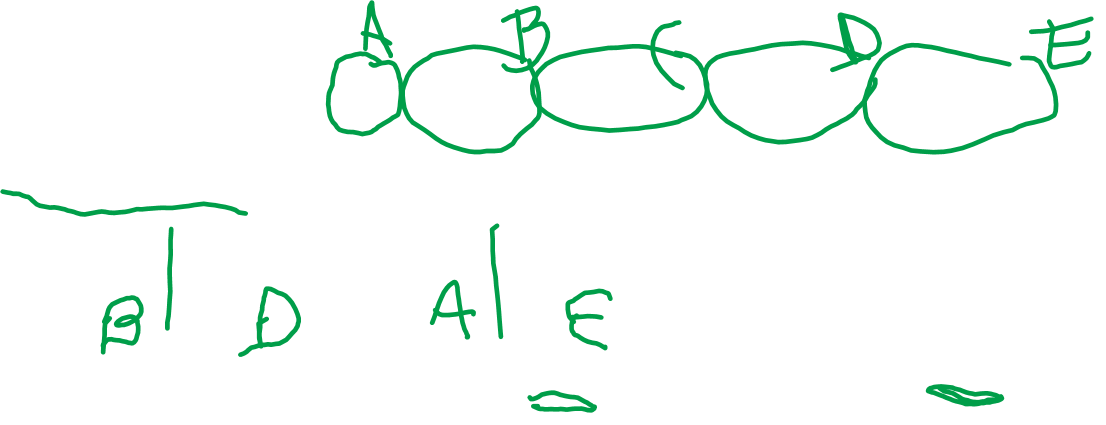 A B C D E
B | D A | E